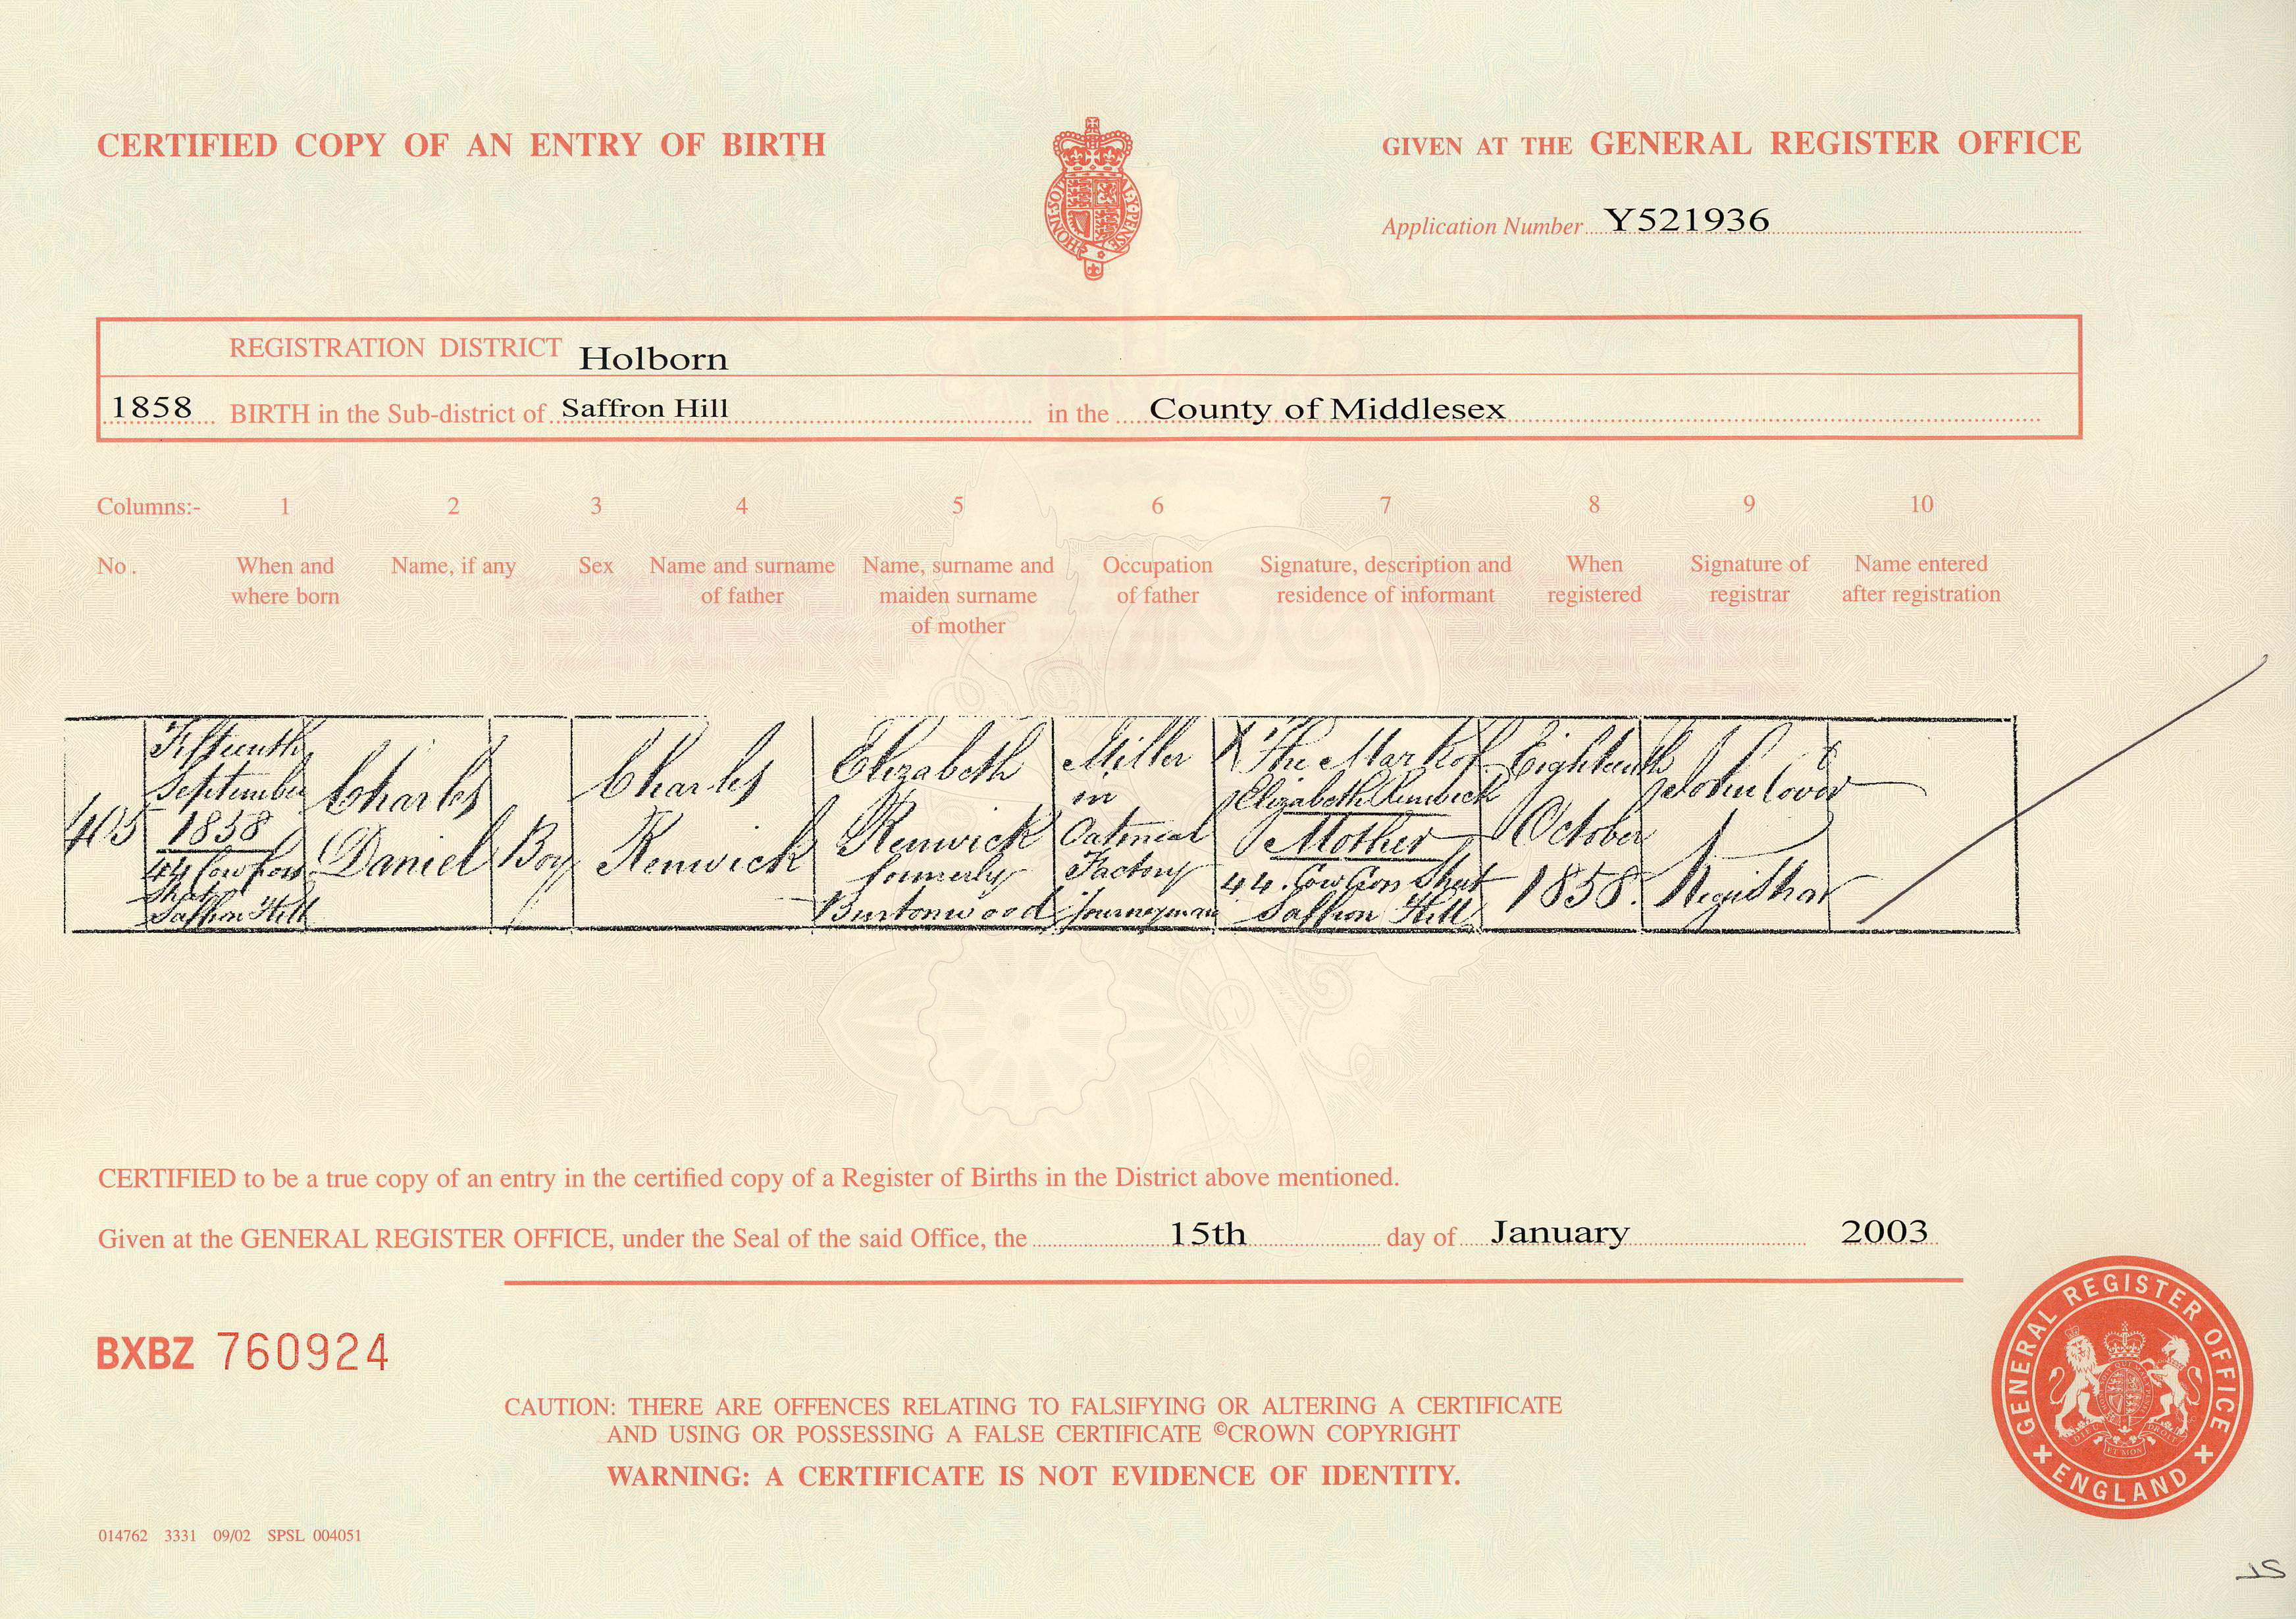 CERTIFIED COPY OF AN ENTRY OF BIRTH
GIVEN AT THE GENERAL REGISTER OFFICE
Application Number Y521936
REGISTRATION DISTRICT Holborn
1858 BIRTH in the Sub-district of Saffron Hill in the County of Middlesex
Columns:- 1 2 3 4 5 6 7 8 9 10
No. When and where born Name, if any Sex Name and surname of father Name, surname and maiden surname of mother Occupation of father Signature, description and residence of informant When registered Signature of registrar Name entered after registration
405
Fifteenth
September
1858
44 Cow Cross
Street
Saffron Hill
Charles
Daniel
Boy
Charles
Renwick
Elizabeth
Renwick
formerly
Burtonwood
Miller
in
Oatmeal
Factory
Journeyman
X The Mark of
Elizabeth Renwick
Mother
44. Cow Cross Street
Saffron Hill
Eighteenth
October
1858.
John
Registrar
CERTIFIED to be a true copy of an entry in the certified copy of a Register of Births in the District above mentioned.
Given at the GENERAL REGISTER OFFICE, under the Seal of the said Office, the 15th day of January 2003
BXBZ 760924
CAUTION: THERE ARE OFFENCES RELATING TO FALSIFYING OR ALTERING A CERTIFICATE
AND USING OR POSSESSING A FALSE CERTIFICATE ©CROWN COPYRIGHT
WARNING: A CERTIFICATE IS NOT EVIDENCE OF IDENTITY.
GENERAL REGISTER OFFICE
ENGLAND
014762 3331 09/02 SPSL 004051